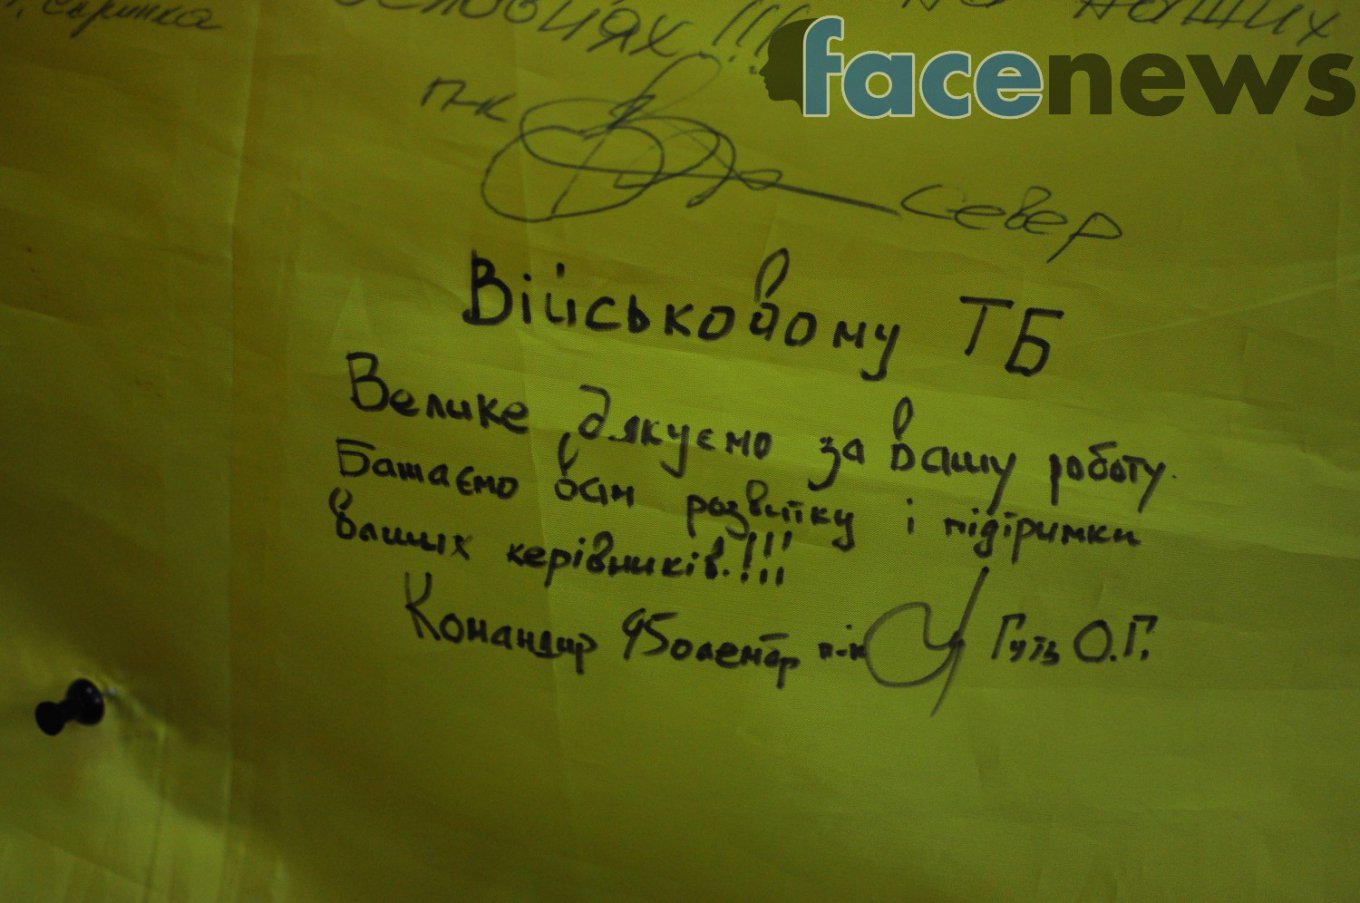 скринка
УСЛОВИЯХ!!!
facenews
п-к
Север
Військовому ТБ
Велике дякуємо за вашу роботу.
Бажаємо вам розвитку і підтримки
ваших керівників!!!
Командир 95олемтр п-к Гуть О.Г.